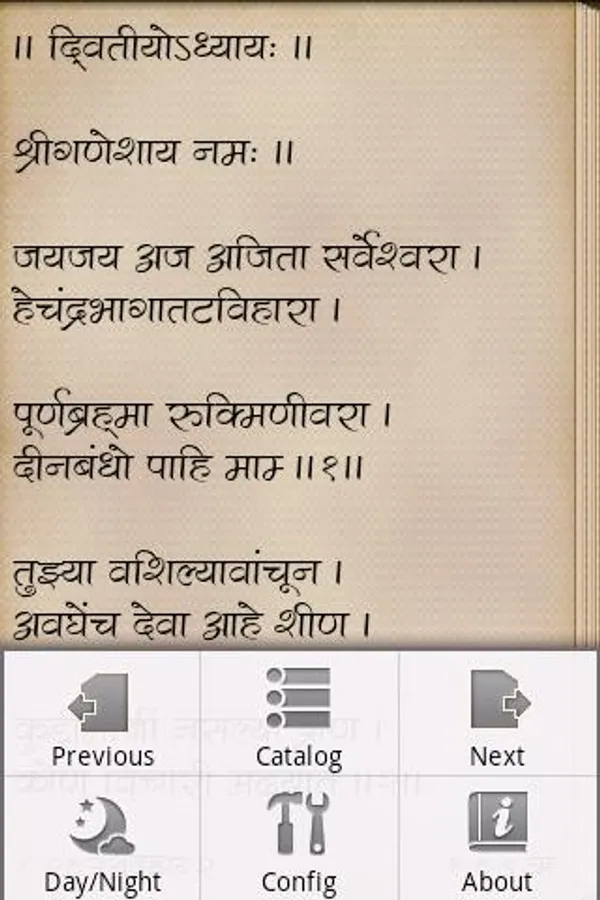 ।। द्वितीयोऽध्यायः ।।
श्रीगणेशाय नमः ।।
जयजय अज अजिता सर्वेश्वरा ।
हेचंद्रभागातटविहारा ।
पूर्णब्रह्मा रुक्मिणीवरा ।
दीनबंधो पाहि माम ।।१।।
तुझ्या वशिल्यावांचून ।
अवघेंच देवा आहे शीण ।
Previous
Catalog
Next
Day/Night
Config
About